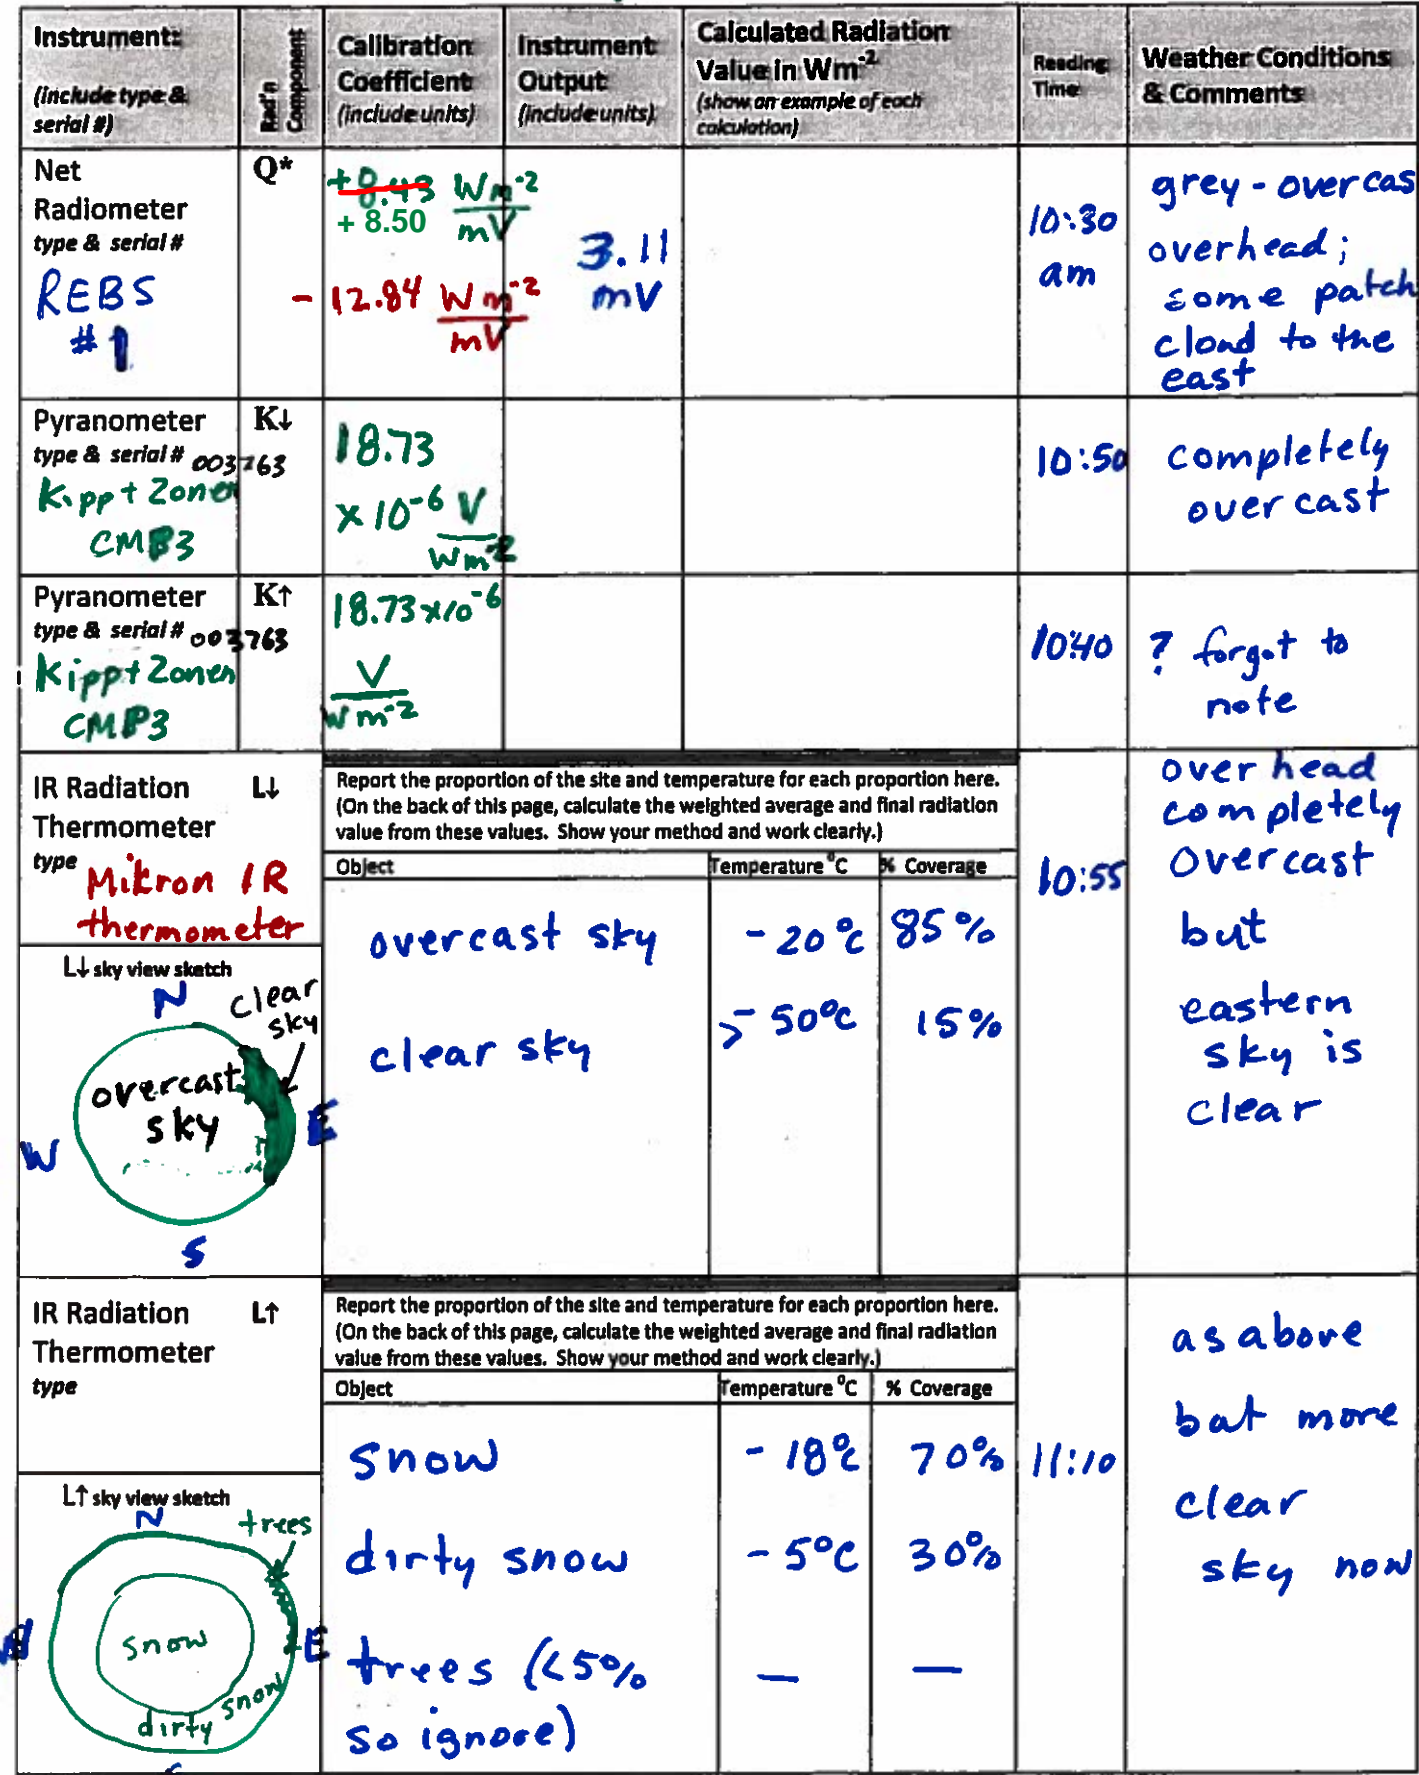 Instrument:
(include type &
serial #)
Rad'n
Component
Calibration
Coefficient
(include units)
Instrument
Output
(include units)
Calculated Radiation
Value in Wm-2
(show an example of each
calculation)
Reading
Time
Weather Conditions
& Comments
Net
Radiometer
type & serial #
REBS
# 1
Q*
+8.43 Wm-2
+ 8.50 mV
- 12.84 Wm-2
mV
3.11
mV
10:30
am
grey - overcas
overhead;
some patch
cloud to the
east
Pyranometer
type & serial # 003763
Kipp + Zonen
CMP3
K↓
18.73
x 10-6 V
Wm-2
10:50
completely
overcast
Pyranometer
type & serial # 003763
Kipp + Zonen
CMP3
K↑
18.73 x10-6
V
Wm-2
10:40
? forgot to
note
IR Radiation
Thermometer
type Mikron IR
thermometer
L↓
Report the proportion of the site and temperature for each proportion here.
(On the back of this page, calculate the weighted average and final radiation
value from these values. Show your method and work clearly.)
Object Temperature °C % Coverage
overcast sky -20°C 85%
clear sky >-50°C 15%
10:55
over head
completely
overcast
but
eastern
sky is
clear
L↓ sky view sketch
N
clear
sky
overcast
sky
E
W
S
IR Radiation
Thermometer
type
L↑
Report the proportion of the site and temperature for each proportion here.
(On the back of this page, calculate the weighted average and final radiation
value from these values. Show your method and work clearly.)
Object Temperature °C % Coverage
snow -18°C 70%
dirty snow -5°C 30%
trees (<5% — —
so ignore)
11:10
as above
but more
clear
sky now
L↑ sky view sketch
N
trees
snow
W
E
dirty snow